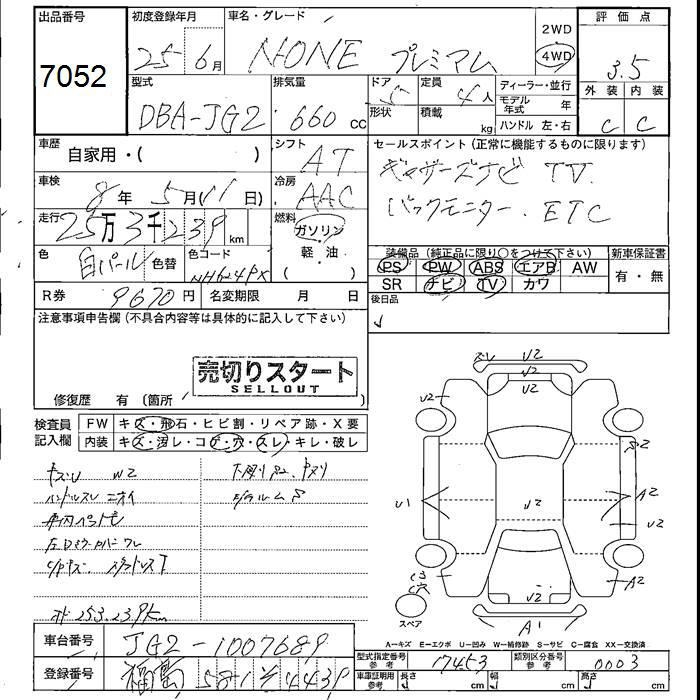 出品番号
7052
初度登録年月
25年 6月
車名・グレード
NONE プレミアム
2WD
4WD
評価点
3.5
外装 内装
C C
型式
DBA-JG2
排気量
660 cc
ドア
5
形状
定員
4人
積載
kg
ディーラー・並行
モデル年式 年
ハンドル 左・右
車歴
自家用・( )
シフト
AT
セールスポイント (正常に機能するものに限ります)
ギャザーズナビ TV.
バックモニター. ETC
車検
8年 5月(11日)
冷房
AAC
走行
25万3千239km
燃料
ガソリン
軽・油
色
白パール
色替
色コード
NH624PX
装備品 (純正品に限り○をつけて下さい)
PS PW ABS エアB AW
SR ナビ TV カワ
新車保証書
有・無
R券
9670円
名変期限 月 日
後日品
注意事項申告欄 (不具合内容等は具体的に記入して下さい)
売切りスタート
SELLOUT
修復歴 有 (箇所 )
検査員記入欄
FW キズ・飛石・ヒビ割・リペア跡・X要
内装 キズ・汚レ・コゲ・穴・スレ・キレ・破レ
W2
ハンドルスレ ニオイ
車内ペット毛
253,239km
U2
U2
U2
U1
U2
A2
U2
A2
U2
A1
スペア
A-キズ E-エクボ U-凹み W-補修跡 S-サビ C-腐食 XX-交換済
車台番号
JG2-1007689
登録番号
福島 581 4439
型式指定番号 参考
17453
類別区分番号 参考
0003
車庫証明用 参考
長さ cm
幅 cm
高さ cm